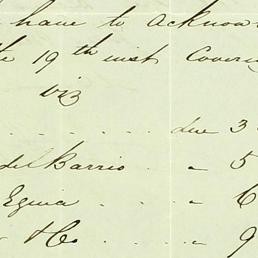 have to acknow
the 19th inst cover
viz
. . . . . . due 3
del Barrio . " 5
Eguia . . . . " 6
& Co . . . . . " 9